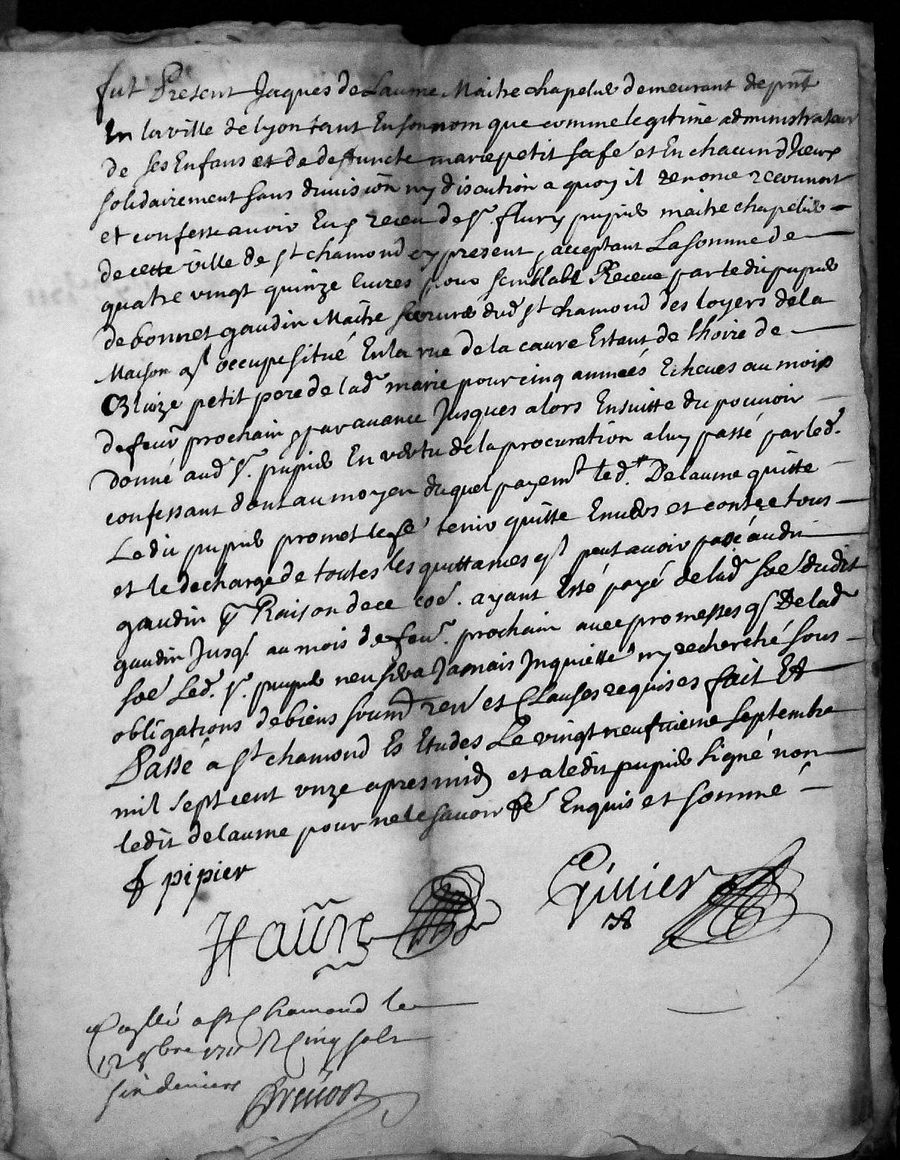 fut Present Jaques de Laume Maitre chapelie demeurant de pnt
En la ville de lyon tant En son nom que comme legitime administrateur
de ses Enfans et de deffuncte marie petit sa fe et En chacun d'Iceux
solidairement sans division ny discution a quoy il renonce recounoit
et confesse avoir Eu & receu de sr. flury pupie maitre chapelie
de cette ville de st chamond cy present & acceptant La somme de
quatre vingt quinze livres pour semblable Receue par ledit pupie
de bonnet gaudin Maitre dud st chamond des loyers de la
Maison ql occupe situé En la rue de la caure Estant de l'hoirie de
Blaize petit pere de lad marie pour cinq années Echeues au mois
de feur prochain & par avance Jusques alors Ensuitte du pouvoir
donné aud sr. pupie En vertu de la procuration a luy passé par led.
confessant dont au moyen duquel payemt led. Delaume quitte
Ledit pupie promet le fe tenir quitte Envers et contre tous
et le decharge de toutes les quittances ql peut avoir passé audit
gaudin Raison de ce ayant Esté payé de lad soe dudit
gaudin Jusq. au mois de feur. prochain avec promesses q De lad
soe Led. sr. pupie ne sera Jamais Inquietté ny recherché sous
obligations de biens soumd ren et Clauses requises fait Et
Passé a st chamond Es Etudes Le vingt neufvieme septembre
mil sept cent unze apres midy et a ledit pupie signé non
ledit delaume pour ne le savoir de Enquis et sommé
f pipier
Pinier
Collé a st Chamond le
12 8bre 1711 R Cinq sols
six deniers